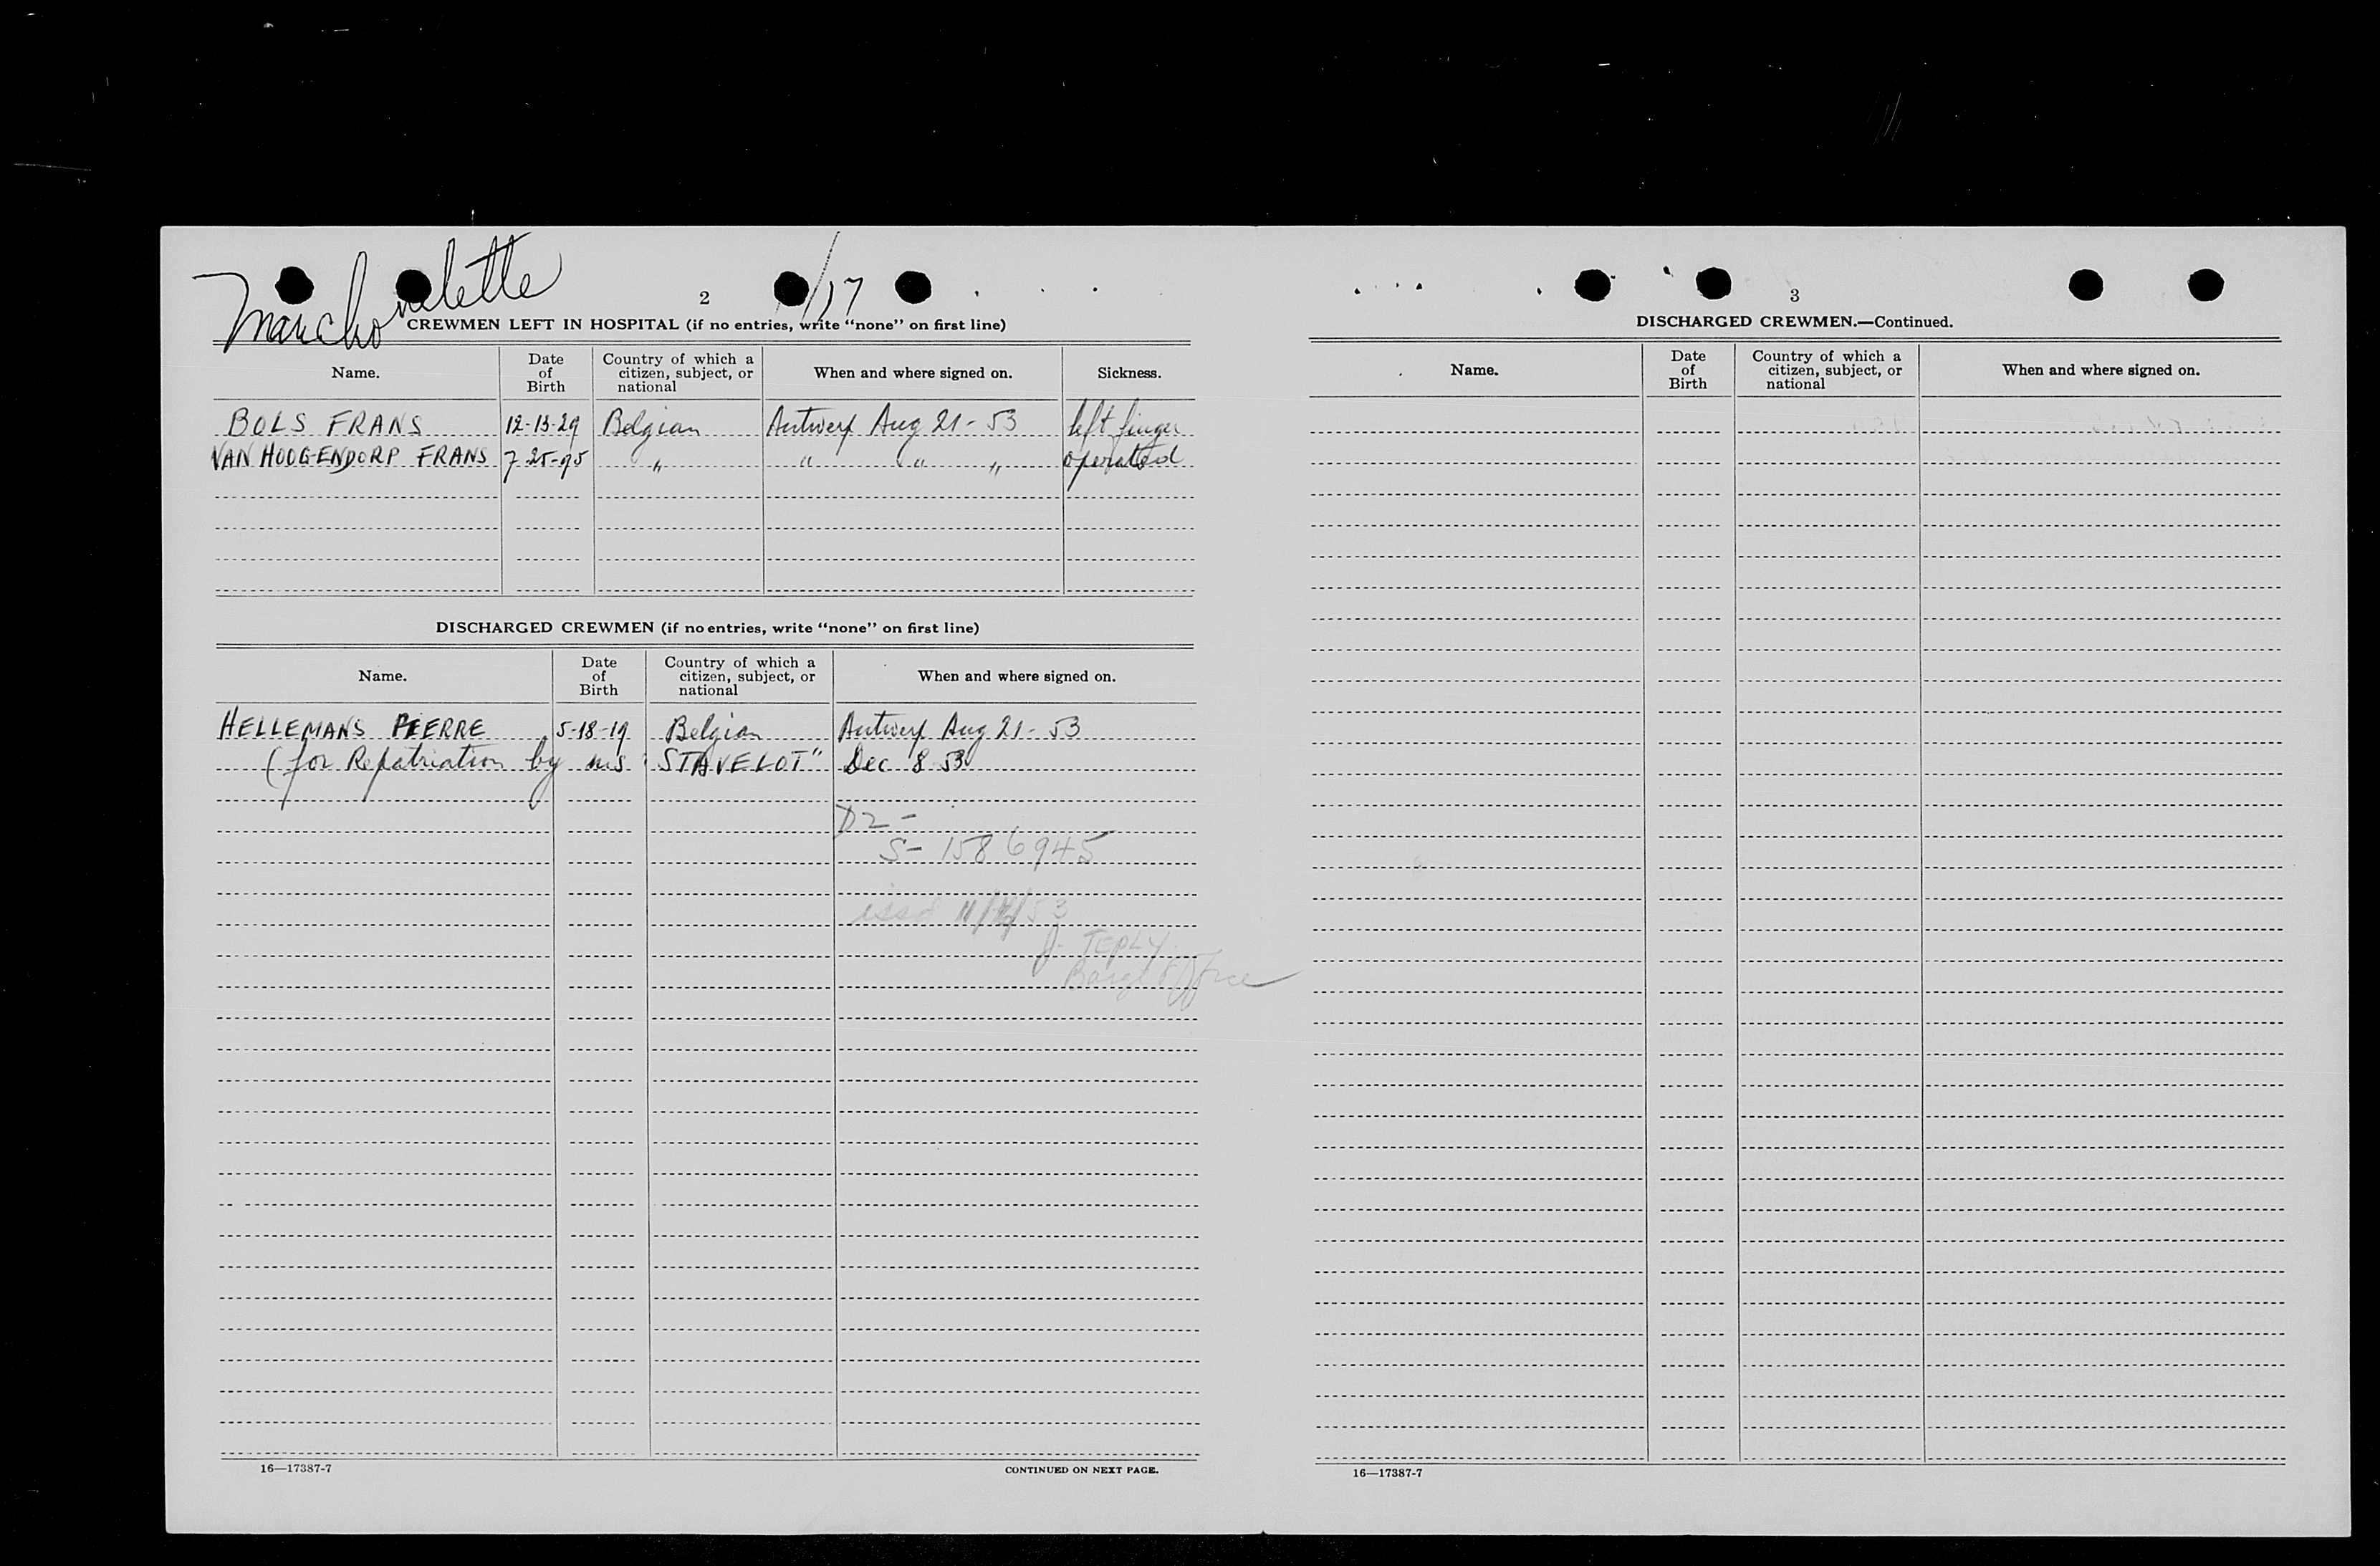 Marchovelette
2
/17
CREWMEN LEFT IN HOSPITAL (if no entries, write “none” on first line)
Name. Date of Birth Country of which a citizen, subject, or national When and where signed on. Sickness.
BOLS FRANS 12-13-29 Belgian Antwerp Aug 21-53 left finger
VAN HOOGENDORP FRANS 7-25-95 " " " " operated
DISCHARGED CREWMEN (if no entries, write “none” on first line)
Name. Date of Birth Country of which a citizen, subject, or national When and where signed on.
HELLEMANS PIERRE 5-18-19 Belgian Antwerp Aug 21-53
(for Repatriation by ms "STAVELOT" Dec 8 53
D2 -
S- 1586945
issd 11/ /53
J. TEPLY
Barge Office
16—17387-7
CONTINUED ON NEXT PAGE.
3
DISCHARGED CREWMEN.—Continued.
Name. Date of Birth Country of which a citizen, subject, or national When and where signed on.
16—17387-7